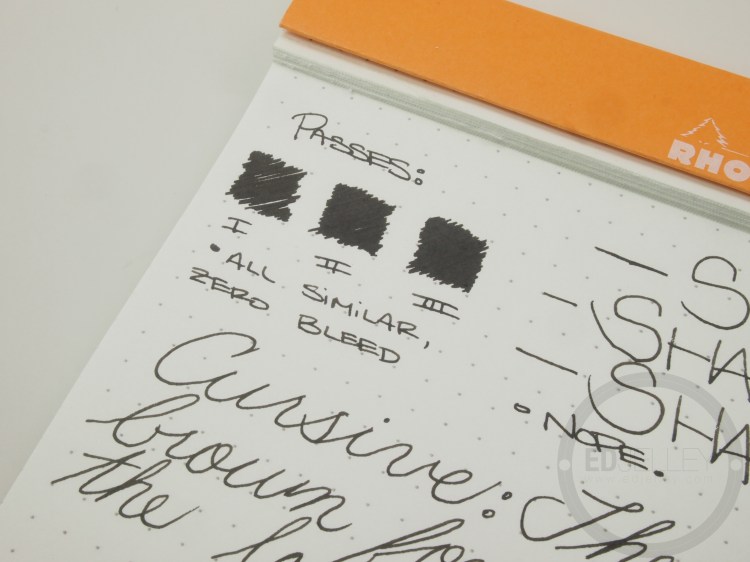 RHO
PASSES:
I II III
• ALL SIMILAR,
ZERO BLEED
— S
— SHA
— SHA
• NOPE.
Cursive: The
brown fo
the la